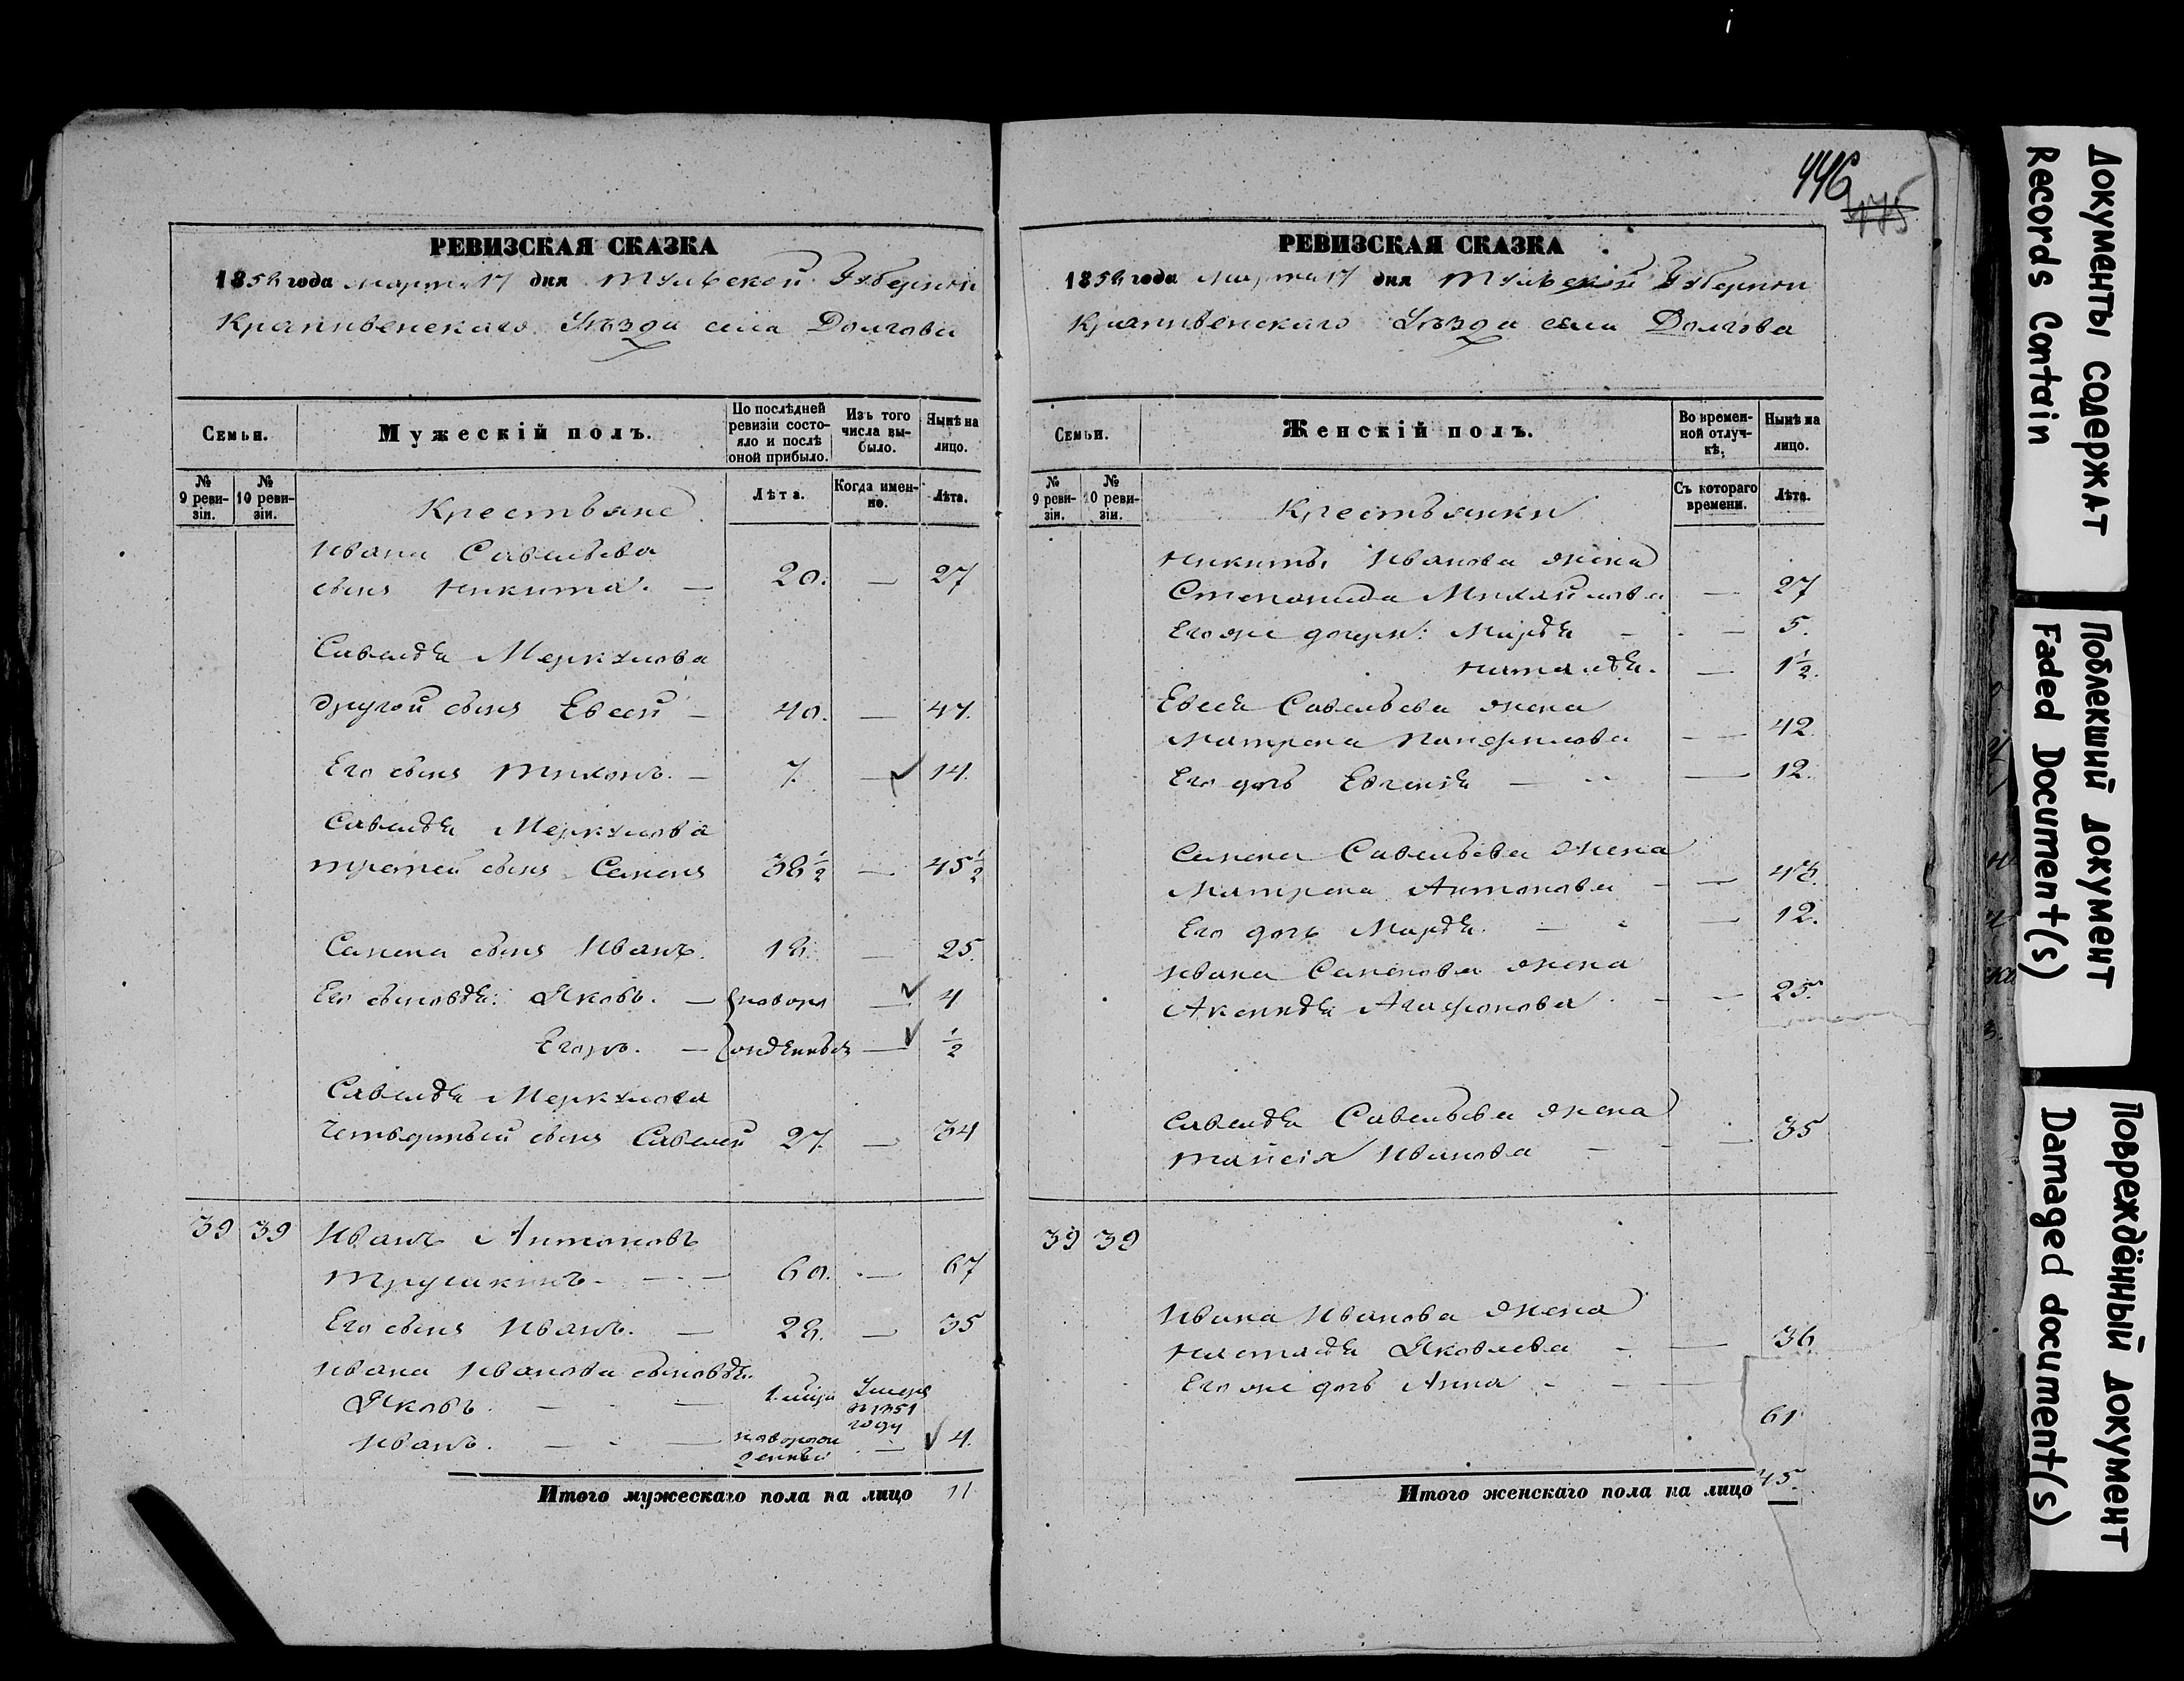 446
475
РЕВИЗСКАЯ СКАЗКА
1858 года марта 17 дня Тульской Губернии
Крапивенскаго Уѣзда села Долгова
Семьи.
Мужескій полъ.
По послѣдней ревизіи состояло и послѣ оной прибыло.
Изъ того числа выбыло.
Нынѣ на лицо.
№ 9 ревизіи.
№ 10 ревизіи.
Крестьяне
Лѣта.
Когда именно.
Лѣта.
Ивана Савельева
сынъ Никита. — 20. — 27
Савелѣя Меркулова
другой сынъ Евсей — 40. — 47.
Его сынъ Тихонъ. — 7. — 14.
Савелѣя Меркулова
третей сынъ Семенъ 38½ — 45½
Семена сынъ Иванъ. 18. — 25.
Его сыновья: Яковъ. — новоро — 4
Егоръ. — жденныя — ½
Савелѣя Меркулова
четвертый сынъ Савелей 27. — 34
39 39 Иванъ Антоновъ
Трушкинъ. — 60. — 67
Его сынъ Иванъ. — 28. — 35
Ивана Иванова сыновья.
Яковъ. — 1 мѣся Умеръ въ 1851 году
Иванъ. — новорожденный — 4.
Итого мужескаго пола на лицо 11
РЕВИЗСКАЯ СКАЗКА
1858 года марта 17 дня Тульской Губернии
Крапивенскаго Уѣзда села Долгова
Семьи.
Женскій полъ.
Во временной отлучкѣ.
Нынѣ на лицо.
№ 9 ревизіи.
№ 10 ревизіи.
Крестьянки
Съ котораго времени.
Лѣта.
Никиты Иванова жена
Степанида Михайлова — 27
Его же дочери: Марья — 5.
Наталья. — 1½.
Евсея Савельева жена
Матрена Панфилова — 42.
Его дочь Евгенія — 12.
Семена Савельева жена
Матрена Антонова —
Его дочь Марья. — 12.
Ивана Семенова жена
Аксинья Агафонова — 25.
Савелья Савельева жена
Таисія Иванова — 35
39 39
Ивана Иванова жена
Наталья Яковлева — 36
Его же дочь Анна —
61
45.
Итого женскаго пола на лицо
Документы содержат
Records Contain
Поблекший документ
Faded Document(s)
Повреждённый документ
Damaged document(s)